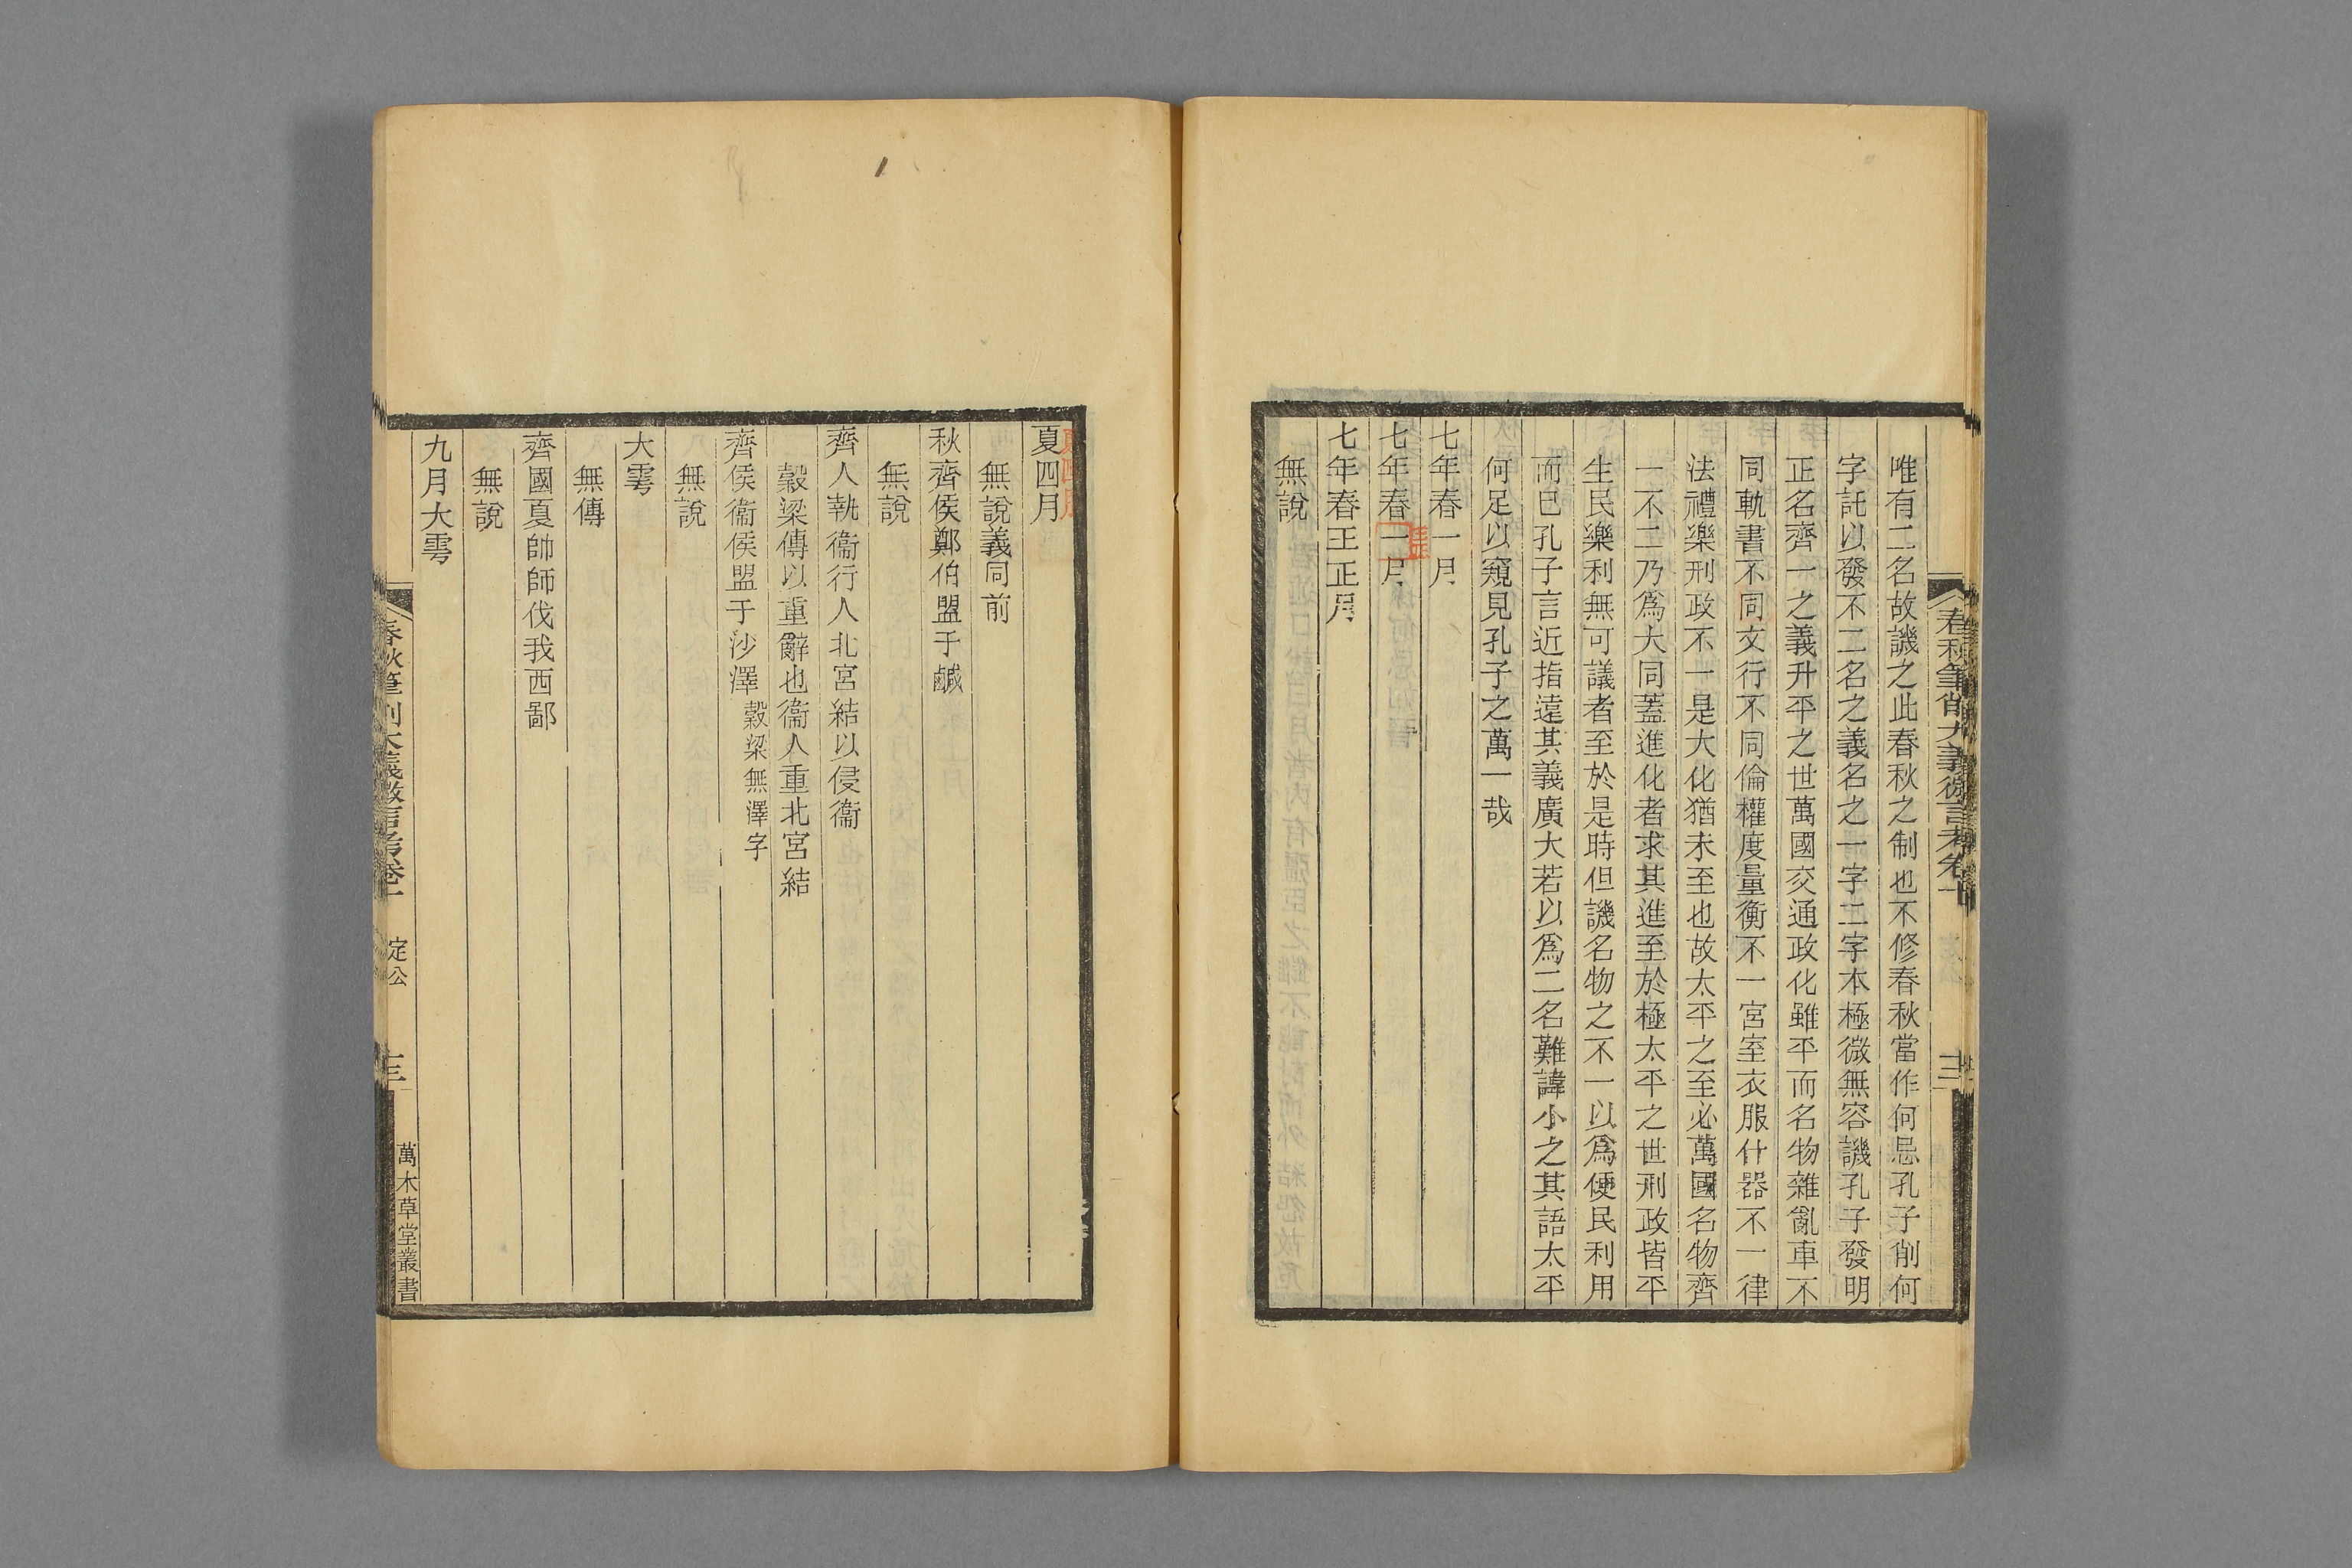 唯有二名故譏之此春秋之制也不修春秋當作何忌孔子削何
字託以發不二名之義名之一字二字本極微無容譏孔子發明
正名齊一之義升平之世萬國交通政化雖平而名物雜亂車不
同軌書不同文行不同倫權度量衡不一宮室衣服什器不一律
法禮樂刑政不一是大化猶未至也故太平之至必萬國名物齊
一不二乃爲大同蓋進化者求其進至於極太平之世刑政皆平
生民樂利無可議者至於是時但譏名物之不一以爲便民利用
而已孔子言近指遠其義廣大若以爲二名難諱小之其語太平
何足以窺見孔子之萬一哉
七年春一月
七年春一月
王正
七年春王正月
無說
夏四月
夏四月
無說義同前
秋齊侯鄭伯盟于鹹
無說
齊人執衞行人北宮結以侵衞
穀梁傳以重辭也衞人重北宮結
齊侯衞侯盟于沙澤 穀梁無澤字
無說
大雩
無傳
齊國夏帥師伐我西鄙
無說
九月大雩
春秋筆削大義微言考卷十
定公
萬木草堂叢書